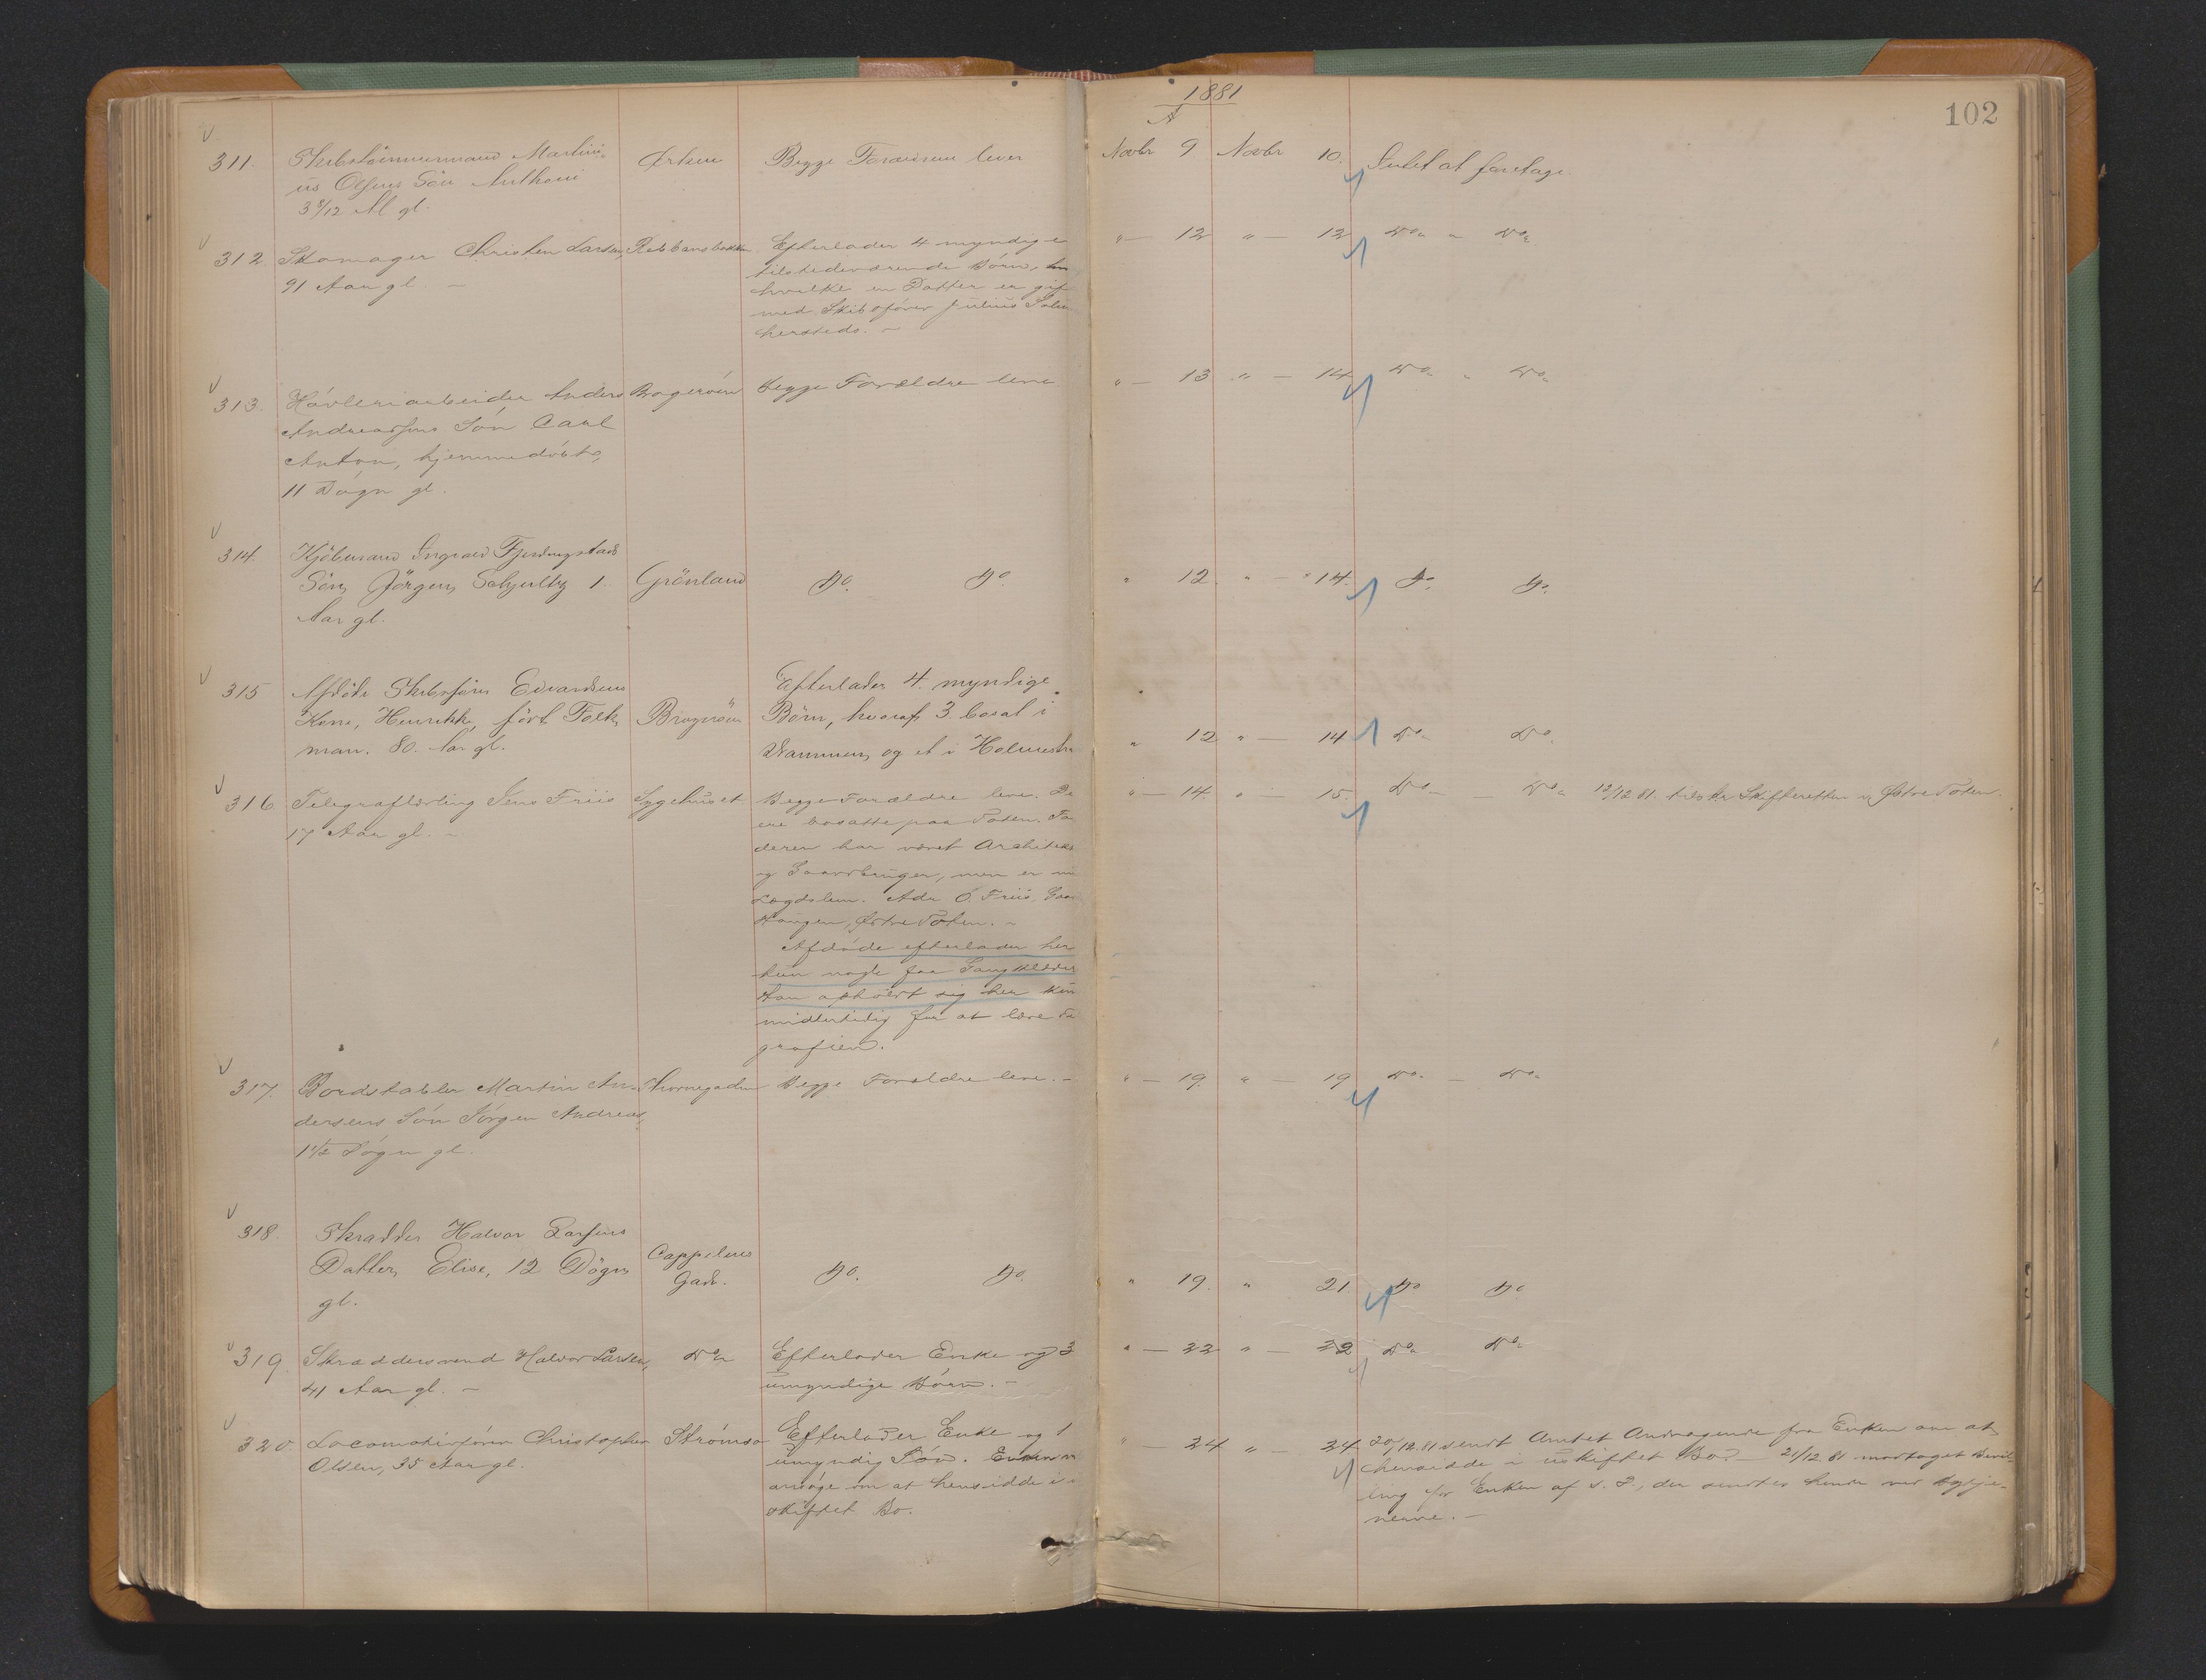 1881
A
102
311. Skibstömmermand Martini-
us Olsens Sön Anthoni
3 8/12 M. gl.
Örken
Begge Forældrene lever
Novbr 9. Novbr 10. Intet at foretage.
312. Skomager Christen Larsen,
91 Aar gl. –
Rebbansbakken
Efterlader 4 myndige
tilstedeværende Börn, 
hvilke en Datter er gif
med Skibsförer Julius
hersteds. –
" – 12 " – 12 Do " Do
313. Hövleriarbeider Anders
Andreassens Sön Carl
Anton, hjemmedöbt,
11 Dögn gl.
Bragerøen
Begge Forældre leve
" – 13 " – 14 Do " Do
314. Kjöbmand Ingvald Fjerdingstads
Sön, Jörgen Schjelby 1
Aar gl.
Grönland
Do. Do.
" 12 " – " 14. Do. Do.
315 Afdöde Skibsförer Edvardsens
Kone, Henrikke, fört Folk-
man. 80. Aar gl.
Bragerøen
Efterlader 4. myndige
Börn, hvoraf 3 bosat i
Drammen, og et i Holmestr
" 12 " – 14 Do Do.
316. Telegraflærling Jens Friis
17 Aar gl. –
Sygehuset
Begge Forældre leve. De
ere bosatte paa Toten. Fa
deren har været Architekt
og Gaardbruger, men er nu
Lægdslem. Adr O. Friis,
Haugen, Östre Toten. –
Afdöde efterlader her
kun nogle faa Gangklæder
Han opholdt sig her kun
midlertidig for at lære Te
grafien.
" – 14. " – 15. Do – Do 12/12 81. tilskr Skifteretten i Østre Toten.
317. Bordstabler Martin An-
dersens Sön Jörgen Andreas,
1 1/2 Dögn gl.
Thornegaden
Begge Forældre leve. –
" – 19. " – 19 Do – Do
318. Skrædder Halvor Larsens
Datter, Elise, 12 Dögn
gl.
Cappelens
Gade.
Do. Do.
" 19. " 21 Do Do
319. Skræddersvend Halvor Larsen,
41 Aar gl. –
Do
Efterlader Enke og 3
umyndige Börn. –
" – 22 " – 22 Do Do
320. Locomotivförer Christopher
Olsen, 35 Aar gl.
Strömsö
Efterlader Enke og 1
umyndig Sön. Enken
ansöge om at hensidde i
skiftet Bo.
" – 24 " – 24 20/12 81 sendt Amtet Andragende fra Enken om at
hensidde i uskiftet Bo – 21/12 81 modtaget Bevil-
ling for Enken af s. D., der sendtes hende ved
nerne. –